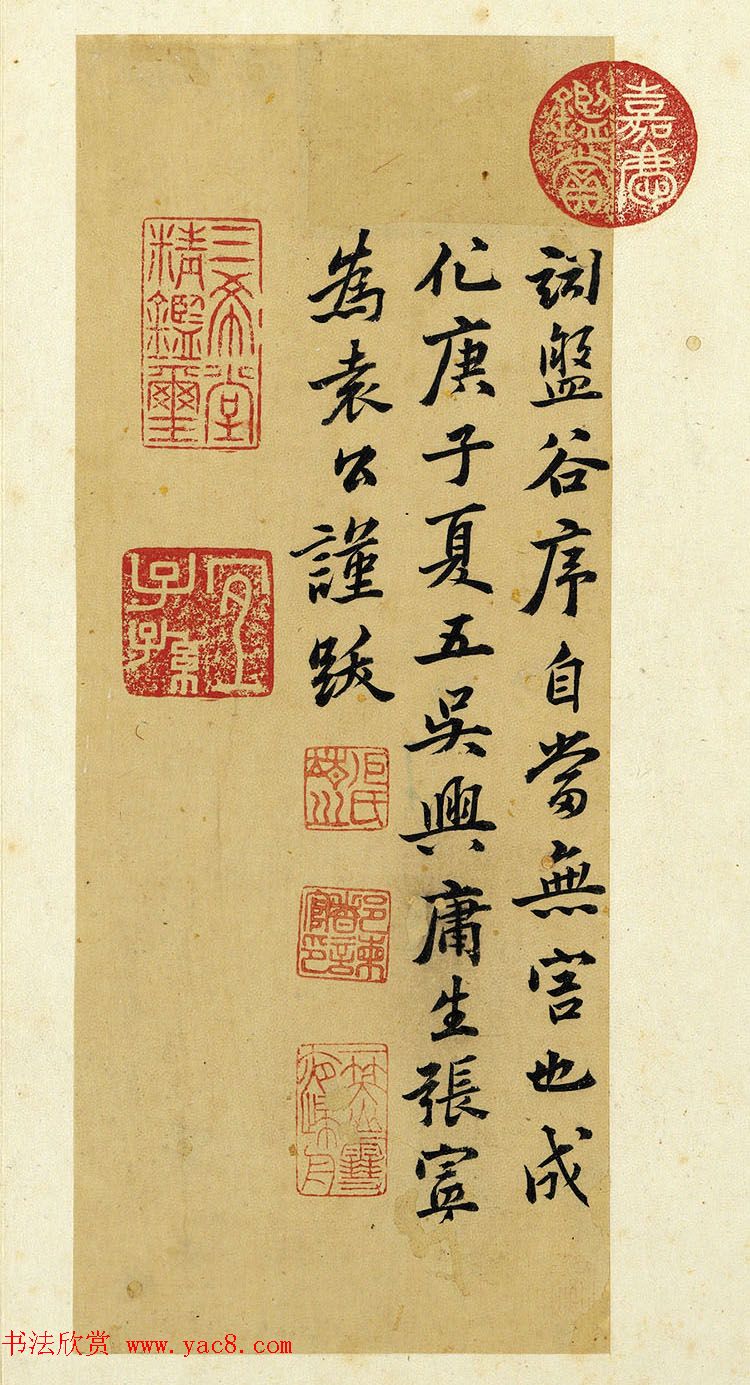 词盤谷序自當無害也成
化庚子夏五吳興庸生張寧
為袁公謹跋
嘉慶鑑賞
三希堂精鑑璽
宜子孫
书法欣赏 www.yac8.com